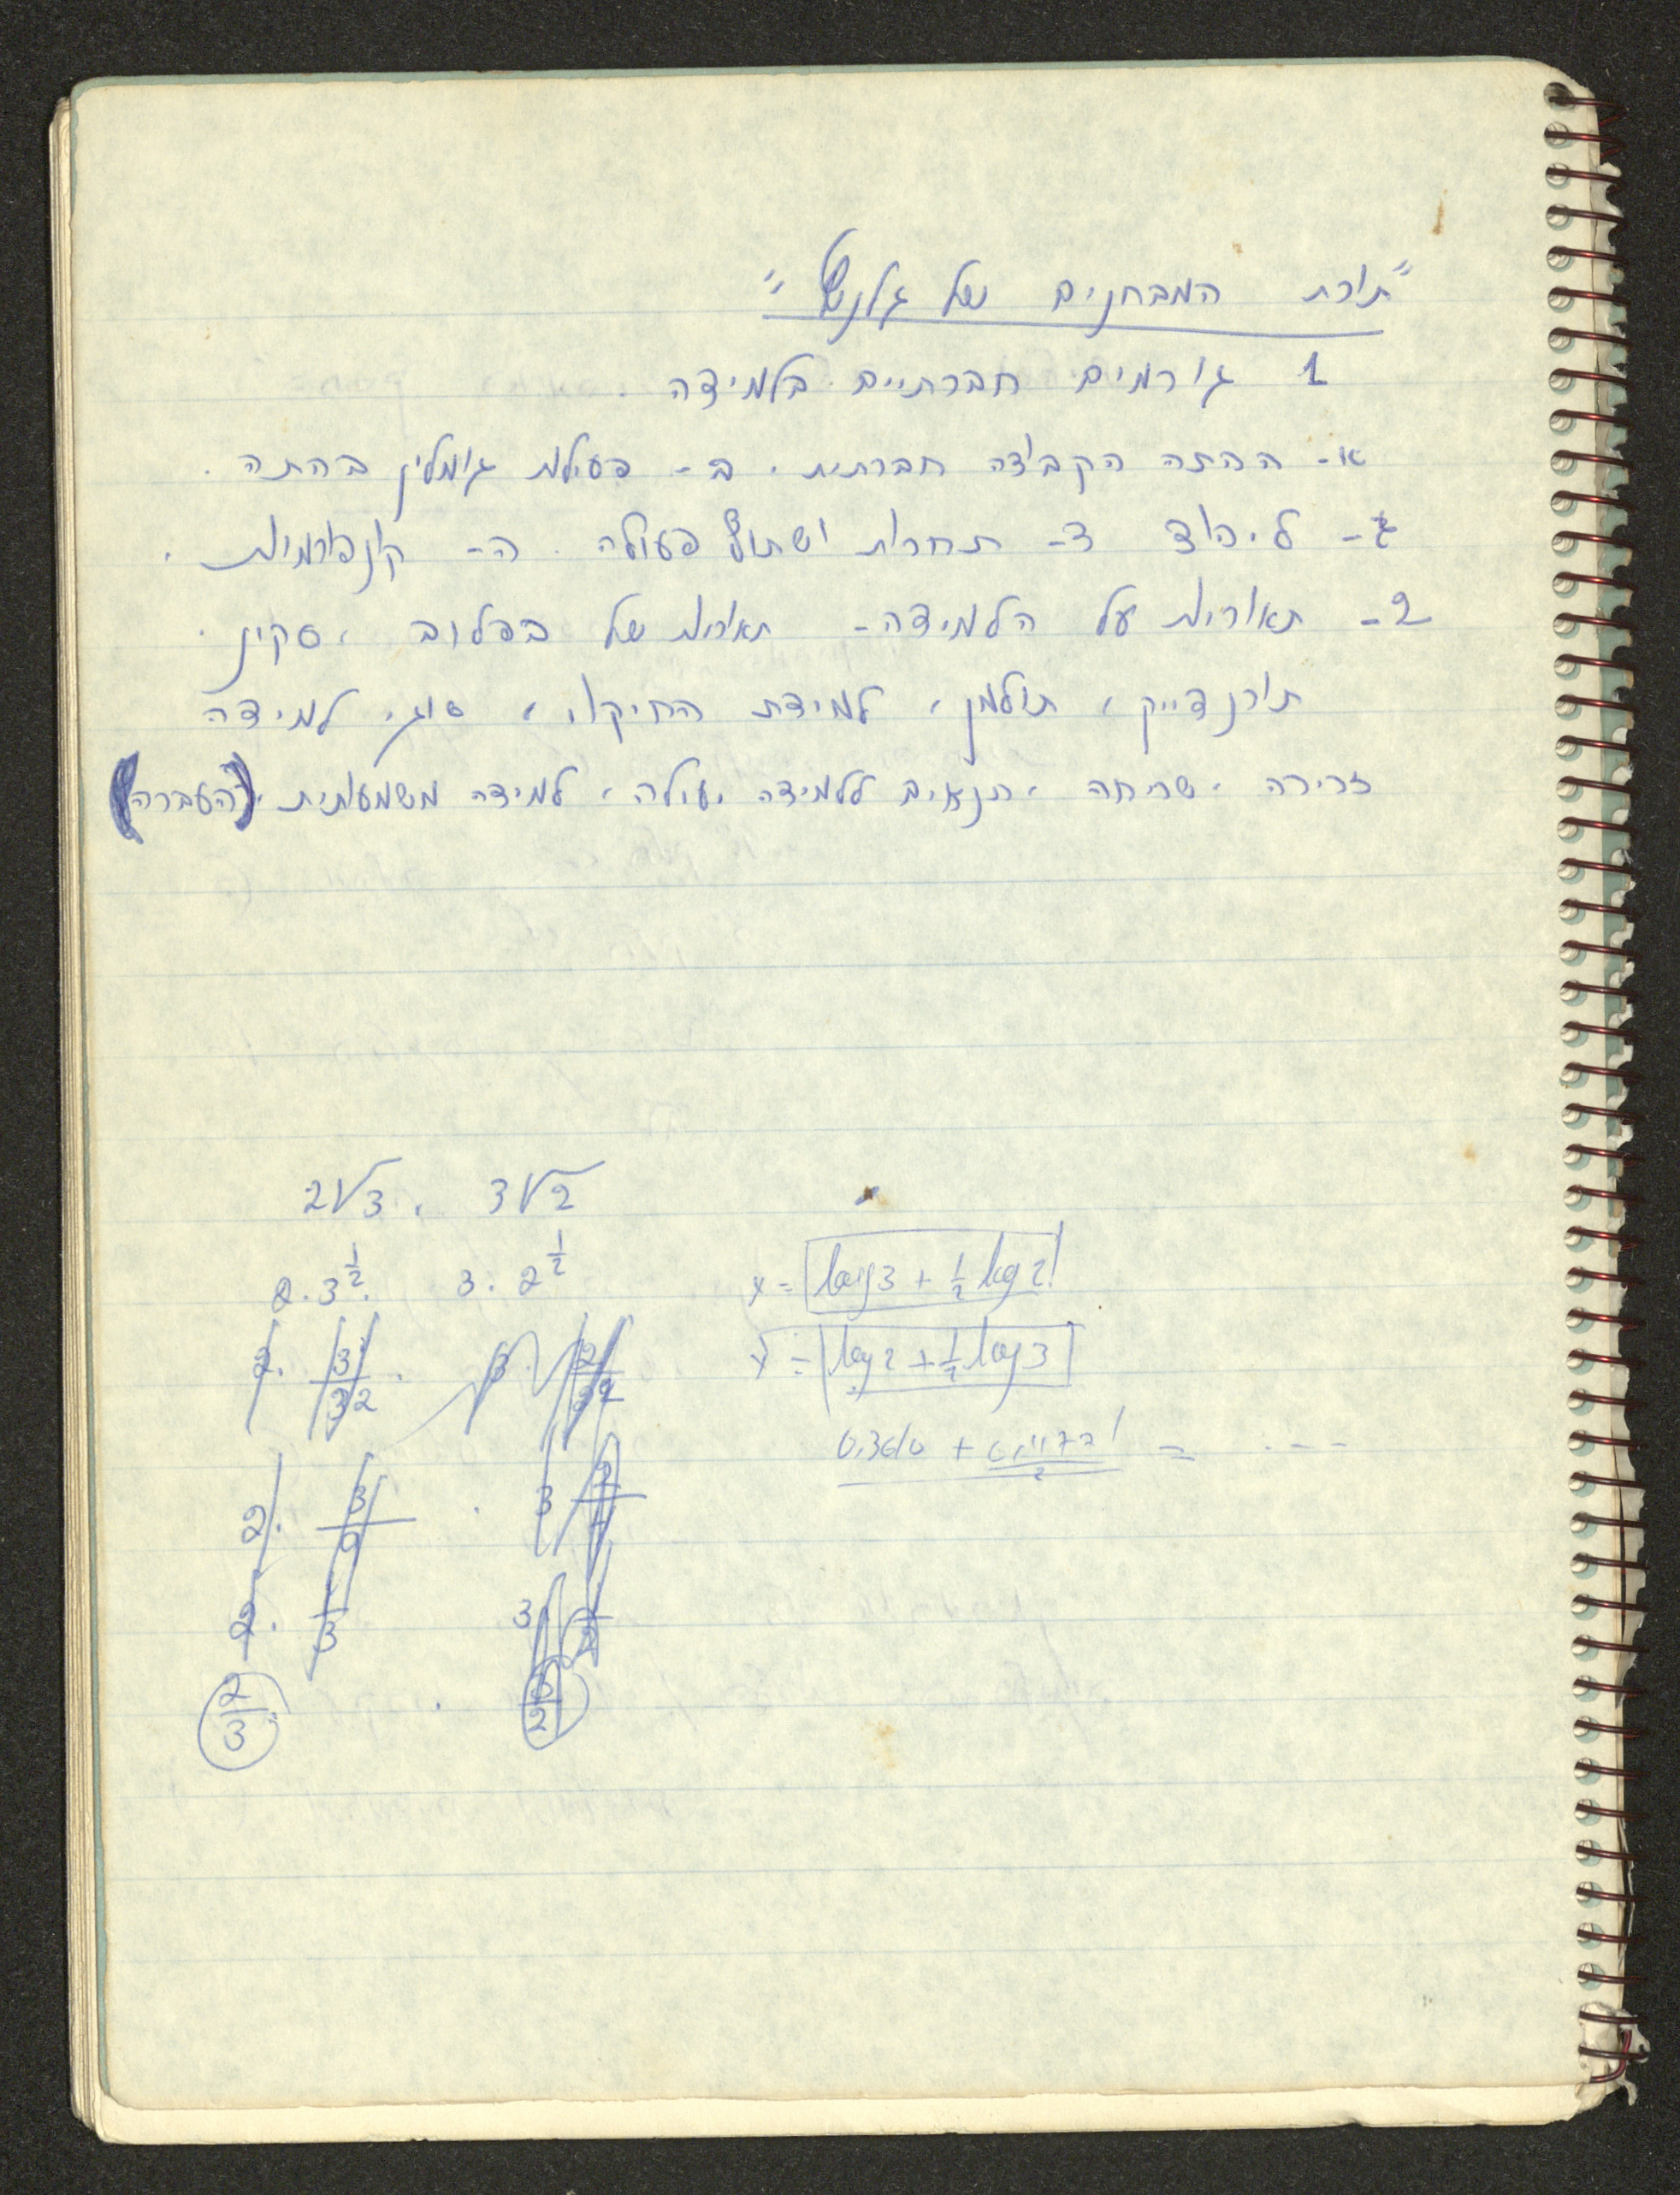 "תורת המבחנים של גלנץ"
1 גורמים חברתיים בלמידה.
א- הכתה כקבוצה חברתית. ב- פעילות גומלין בכתה.
ג- ליכוד ד- תחרות ושתוף פעולה. ה- קונפורמיות.
2- תאוריות על הלמידה- תאוריות של בפלוב, סקינר.
תורנדייק, תולמן, למידת החיקוי, סוגי למידה
זכירה, שכיחה, תנאים ללמידה יעילה, למידה משמעותית, (העברה)
2√3 . 3√2
2.3^½. 3.2^½
x = log3 + ½ log2
y = log2 + ½ log3
2/3 . 3/2